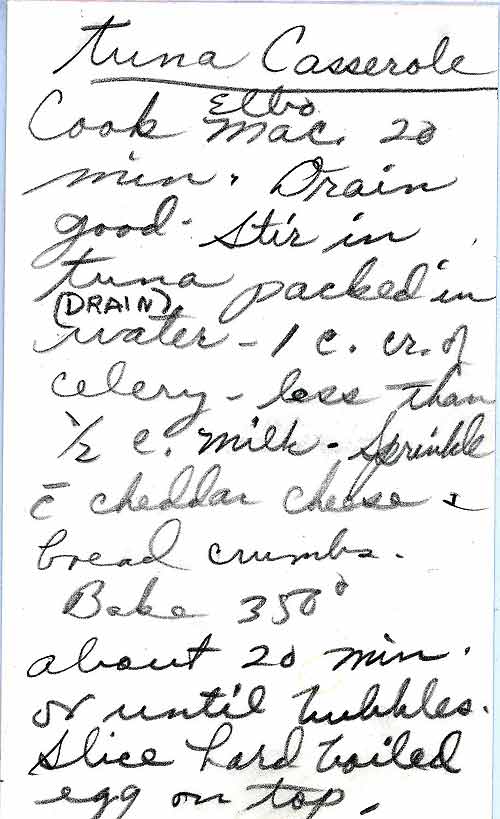 tuna Casserole
Elbo
Cook Mac. 20
min. Drain
good. Stir in
tuna packed in
(DRAIN)
water - 1 c. cr. of
celery - less than
1/2 c. milk - Sprinkle
c̄ cheddar cheese &
bread crumbs.
Bake 350°
about 20 min.
or until bubbles.
Slice hard boiled
egg on top.